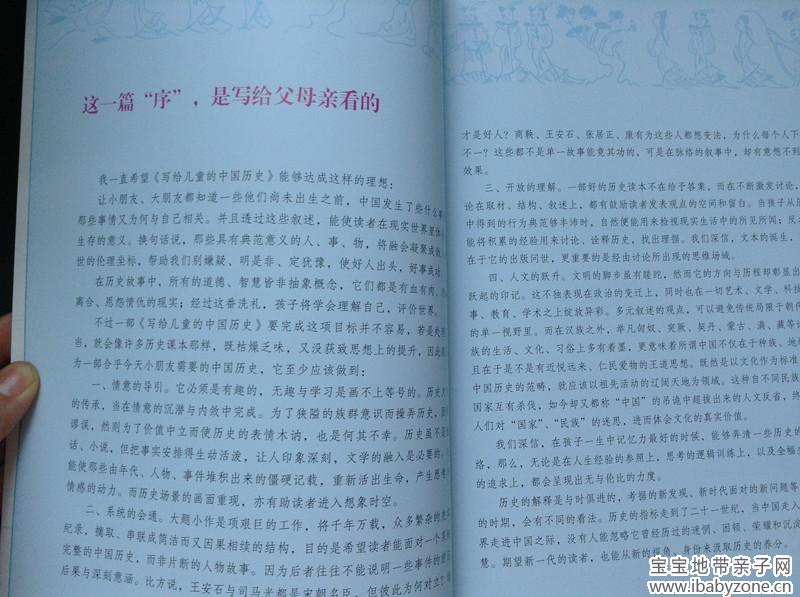 这一篇“序”，是写给父母亲看的
我一直希望《写给儿童的中国历史》能够达成这样的理想：
让小朋友、大朋友都知道一些他们尚未出生之前，中国发生了些什么事
那些事情又为何与自己相关。并且透过这些叙述，能使读者在现实世界里体
生存的意义。换句话说，那些具有典范意义的人、事、物，将融会凝聚成
世的伦理坐标，帮助我们别嫌疑、明是非、定犹豫，使好人出头，好事成功
在历史故事中，所有的道德、智慧皆非抽象概念，它们都是有血有肉
离合、恩怨情仇的现实；经过这番洗礼，孩子将学会理解自己，评价世界。
不过一部《写给儿童的中国历史》要完成这项目标并不容易，若是失
当，就会像许多历史课本那样，既枯燥乏味，又没获致思想上的提升，因此
为一部合乎今天小朋友需要的中国历史，它至少应该做到：
一、情意的导引。它必须是有趣的，无趣与学习是画不上等号的。历史
的传承，当在情意的沉潜与内敛中完成。为了狭隘的族群意识而操弄历史，
谬误，然则为了价值中立而使历史的表情木讷，也是何其不幸。历史虽不是
话、小说，但把事实安排得生动活泼，让人印象深刻，文学的融入是必要的
能使那些由年代、人物、事件堆积出来的僵硬记载，重新活出生命，产生思考
情感的动力。而历史场景的画面重现，亦有助读者进入想象时空。
二、系统的会通。大题小作是项艰巨的工作，将千年万载，众多繁杂的
纪录，摘取、串联成简洁而又因果相续的结构，目的是希望读者能面对一个
完整的中国历史，而非片断的人物故事。因为后者往往不能说明一些事件的
后果与深刻意涵。比方说，王安石与司马光都是宋朝名臣，但彼此为何对立？
才是好人？商鞅、王安石、张居正、康有为这些人都想变法，为什么每个人下
不一？这些都不是单一故事能竟其功的，可是在脉络的叙事中，却有意想不到
效果。
三、开放的理解。一部好的历史读本不在给予答案，而在不断激发讨论，
论在取材、结构、叙述上，都有鼓励读者发表观点的空间和留白。当孩子从
中得到的行为典范够丰沛时，自然便能用来检视现实生活中的所见所闻；反
能将累积的经验用来讨论、诠释历史，找出理强。我们深信，文本的诞生，
在于它的出版问世，更重要的是经由讨论所出现的思维场域。
四、人文的跃升。文明的脚步虽有蹉跎，然而它的方向与历程却彰显出
跃起的印记。这不独表现在政治的变迁上，同时也在一切艺术、文学、科技
事、教育、学术之上绽放异彩。多元叙述的观点，可以避免传统局限于朝代
的单一视野里。而在汉族之外，举凡匈奴、突厥、契丹、蒙古、满、藏等
族的生活、文化、习俗上多有着墨，更意味着所谓中国不仅在于种族、地域
且在于是不是有近悦远来、仁民爱物的王道思想。既然是以文化作为标准
中国历史的范畴，就应该以祖先活动的辽阔天地为领域。这种自不同民族
国家互有杀伐，如今却又都称“中国”的吊诡中超拔出来的人文反省，终
人们对“国家”、“民族”的迷思，进而体会文化的真实价值。
我们深信，在孩子一生中记忆力最好的时候，能够弄清一些历史的
络，那么，无论是在人生经验的参照上，思考的逻辑训练上，以及全幅
的追求上，都会呈现出无与伦比的力度。
历史的解释是与时俱进的，考据的新发现、新时代面对的新问题等
的时期，会有不同的看法。历史的指标走到了二十一世纪，当中国走入
界走进中国之际，没有人能忽略它曾经历过的迷惘、困顿、荣耀和沉
慧。期望新一代的读者，也能从新的视角、身份来汲取历史的养分。
宝宝地带亲子网
www.ibabyzone.cn